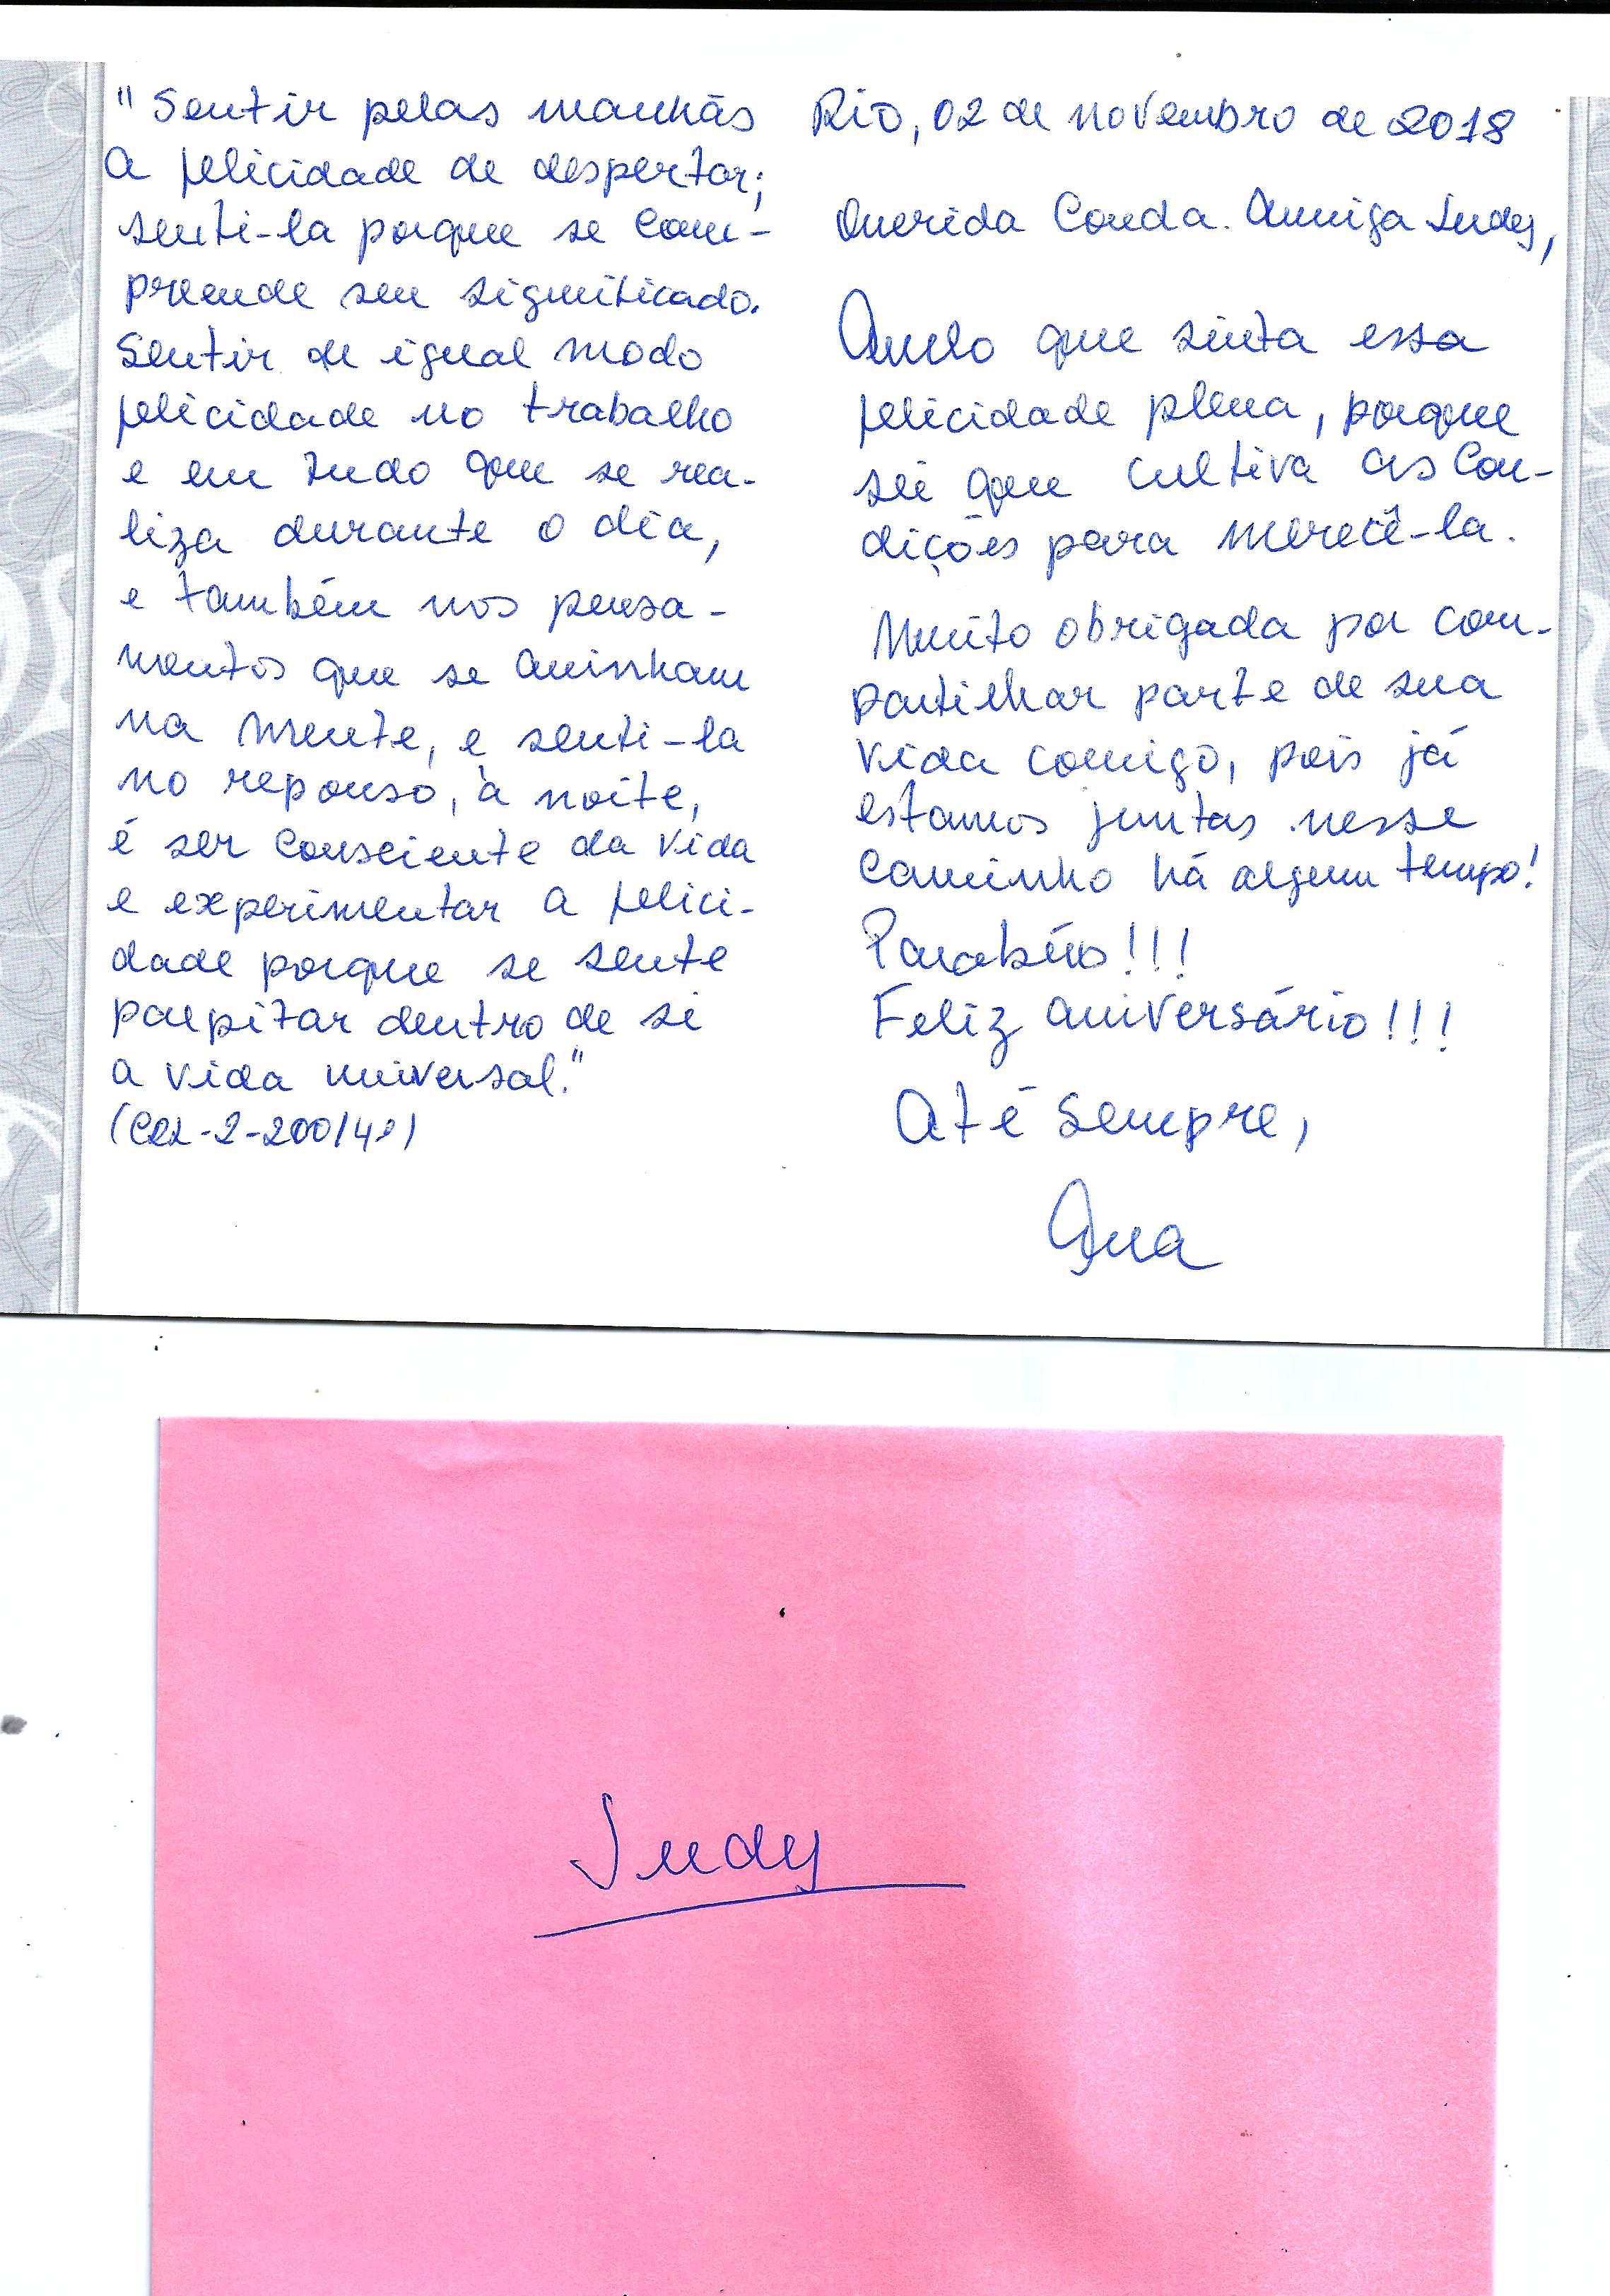 "Sentir pelas manhãs
a felicidade de despertar;
senti-la porque se com-
preende seu significado.
Sentir de igual modo
felicidade no trabalho
e em tudo que se rea-
liza durante o dia,
e também nos pensa-
mentos que se aninham
na mente, e senti-la
no repouso, à noite,
é ser consciente da vida
e experimentar a felici-
dade porque se sente
palpitar dentro de si
a vida universal."
Rio, 02 de novembro de 2018
Querida Conda. Amiga Judy,
Anelo que sinta essa
felicidade plena, porque
sei que cultiva as con-
dições para merecê-la.
Muito obrigada por com-
partilhar parte de sua
vida comigo, pois já
estamos juntas nesse
caminho há algum tempo!
Parabéns!!!
Feliz aniversário!!!
Até sempre,
Ana
Judy